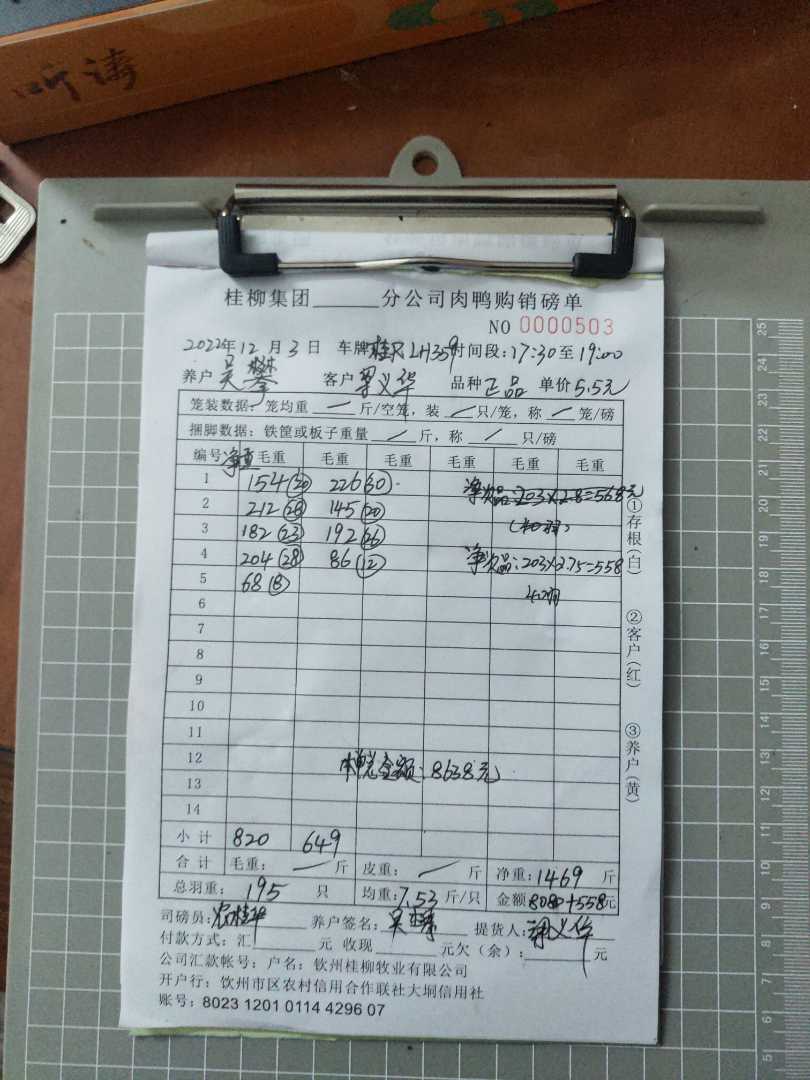 听涛
桂柳集团______分公司肉鸭购销磅单
NO 0000503
2022年12月3日 车牌桂R LH359时间段:17:30至19:00
养户吴攀 客户梁义华 品种正品 单价5.5元
笼装数据:笼均重 / 斤/空笼,装 / 只/笼,称 / 笼/磅
捆脚数据:铁筐或板子重量 / 斤,称 / 只/磅
编号 净重 毛重 毛重 毛重 毛重 毛重 毛重
1 154(20) 226(30) 净次品:203×2.8=568元
2 212(28) 145(20)
3 182(23) 192(26)
4 204(28) 86(12) 净次品:203×2.75=558
5 68(8)
6
7
8
9
10
11
12 金额:8638元
13
14
小计 820 649
合计 毛重: / 斤 皮重: / 斤 净重:1469 斤
总羽重: 195 只 均重:7.53 斤/只 金额8080+558元
司磅员: 养户签名:吴攀 提货人:梁义华
付款方式:汇______元 收现______元欠(余):______元
公司汇款帐号:户名:钦州桂柳牧业有限公司
开户行:钦州市区农村信用合作联社大垌信用社
账号:8023 1201 0114 4296 07
①存根(白) ②客户(红) ③养户(黄)
25
24
23
22
21
20
19
18
17
16
15
14
13
12
11
10
9
8
7
6
5